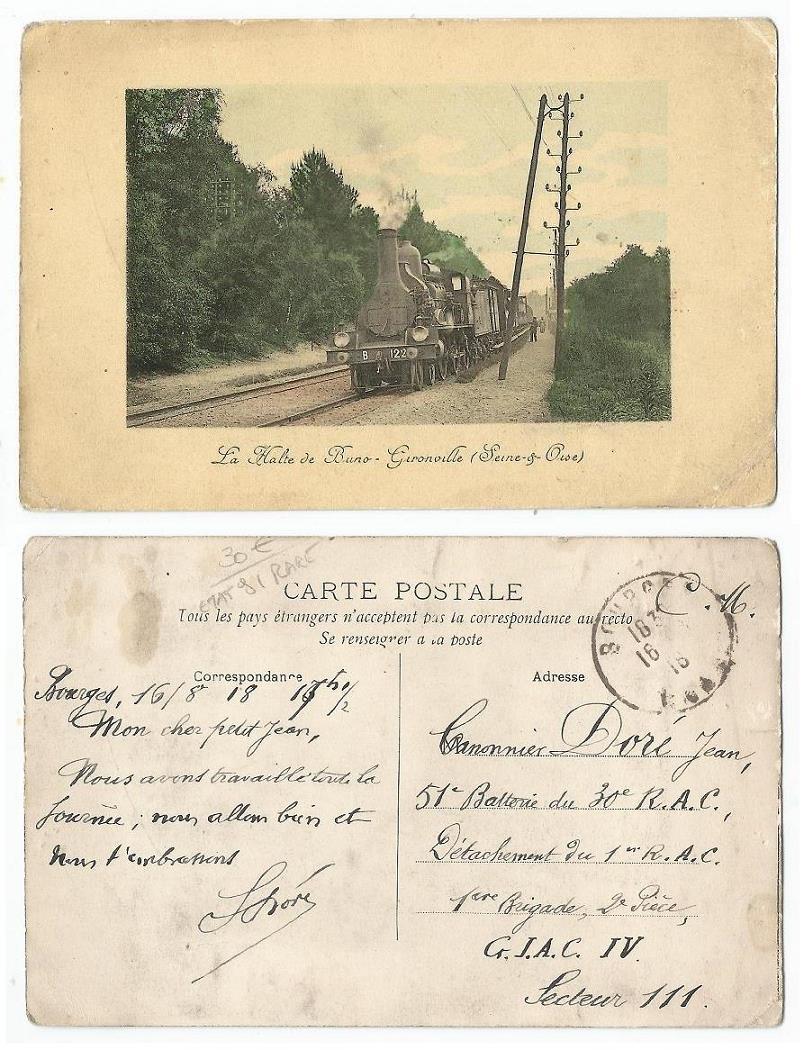 B 122
La Halte de Buno - Gironville (Seine-&-Oise)
30 €
ETAT 81 RARE
CARTE POSTALE
Tous les pays étrangers n'acceptent pas la correspondance au recto
Se renseigner à la poste
C. M.
BOURGES
16
18
Correspondance
Bourges, 16/8 18 17h 1/2
Mon cher petit Jean,
Nous avons travaillé toute la
journée; nous allons bien et
nous t'embrassons
Doré
Adresse
Canonnier Doré Jean,
51e Batterie du 30e R.A.C.,
Détachement du 1er R.A.C.
1ère Brigade, 2e Pièce,
C.I.A.C. IV.
Secteur 111.